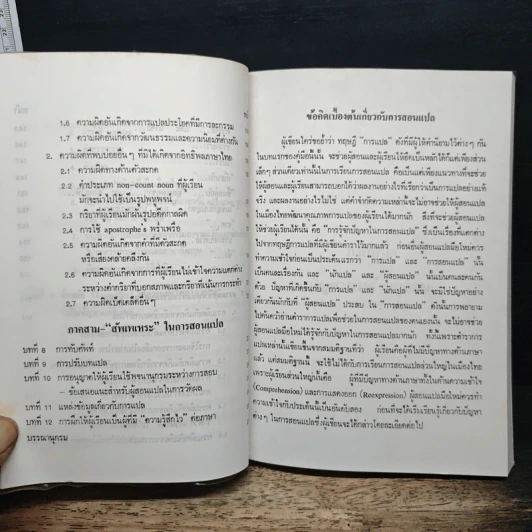 1.6 ความผิดอันเกิดจากการแปลประโยคที่มีการละกรรม
1.7 ความผิดอันเกิดจากวัฒนธรรมและความนิยมที่ต่างกัน
2. ความผิดที่พบบ่อยอื่นๆ ที่มิได้เกิดจากอิทธิพลภาษาไทย
2.1 ความผิดทางด้านตัวสะกด
2.2 คำประเภท non-count noun ที่ผู้เรียน
มักจะนำไปใช้เป็นรูปพหูพจน์
2.3 กริยาที่ผู้เรียนมักผันรูปอดีตกาลผิด
2.4 การใช้ apostrophe s พร่ำเพรื่อ
2.5 ความผิดอันเกิดจากคำที่มีตัวสะกด
หรือเสียงคล้ายคลึงกัน
2.6 ความผิดอันเกิดจากการที่ผู้เรียนไม่เข้าใจความแตกต่าง
ระหว่างคำกริยาที่บอกสภาพและกริยาที่เน้นการกระทำ
2.7 ความผิดเบ็ดเตล็ดอื่นๆ
ภาคสาม-“สัพเพเหระ” ในการสอนแปล
บทที่ 8 การทับศัพท์
บทที่ 9 การปรับบทแปล
บทที่ 10 การอนุญาตให้ผู้เรียนใช้พจนานุกรมระหว่างการสอบ
- ข้อเสนอแนะสำหรับผู้สอนแปลในการวัดผล
บทที่ 11 แหล่งข้อมูลเกี่ยวกับการแปล
บทที่ 12 การฝึกให้ผู้เรียนเป็นผู้ที่มี “ความรู้สึกไว” ต่อภาษา
บรรณานุกรม
ข้อคิดเบื้องต้นเกี่ยวกับการสอนแปล
ผู้เขียนใคร่ขอย้ำว่า ทฤษฎี “การแปล” ดังที่มีผู้ให้คำนิยามไว้ต่างๆ กัน
ในบทแรกของคู่มือนี้นั้น จะช่วยผู้สอนและผู้เรียนให้
เล็กๆ ส่วนเดียวเท่านั้นในการเรียนการสอนแปล คือเป็นแค่เพียงแนวทางที่จะช่วย
ให้ผู้สอนและผู้เรียนสามารถบอกได้ว่าผลงานอย่างไรที่เรียกว่าเป็นการแปลอย่างแท้
จริง และผลงานอย่างไรไม่ใช่ แต่คำจำกัดความเหล่านั้นจะไม่อาจช่วยให้ผู้สอนแปล
ในเมืองไทยพัฒนาคุณภาพการแปลของผู้เรียนได้มากนัก สิ่งที่จะช่วยผู้สอนแปล
ให้ช่วยผู้เรียนได้นั้น คือ “การรู้จักปัญหาในการสอนแปล” ซึ่งเป็นเรื่องที่แตกต่าง
ไปจากทฤษฎีการแปลที่มีผู้เขียนตำราไว้มากแล้ว ก่อนอื่นผู้สอนแปลมือใหม่ควร
ทำความเข้าใจก่อนเป็นประเด็นแรกว่า “การแปล” และ “การสอนแปล” นั้น
เป็นคนละเรื่องกัน และ “นักแปล” และ “ผู้สอนแปล” นั้นเป็นคนละคนกัน
ด้วย ปัญหาที่เกิดขึ้นกับ “การแปล” และ “นักแปล” นั้น จะมิใช่ปัญหาอย่าง
เดียวกันนักกับที่ “ผู้สอนแปล” ประสบ ใน “การสอนแปล” ดังนั้นการพยายาม
ไปค้นคว้าอ่านตำราการแปลเพื่อช่วยในการสอนแปลของตนเองนั้น จะไม่อาจช่วย
ผู้สอนแปลมือใหม่ได้รู้จักกับปัญหาในการสอนแปลมากนัก ทั้งนี้เพราะตำราการ
แปลเหล่านั้นเขียนขึ้นจากสมมติฐานที่ว่า ผู้เรียนต้องผู้ที่ไม่มีปัญหาทางด้านภาษา
แล้ว แต่สมมติฐานนี้ จะใช้ไม่ได้กับการเรียนการสอนแปลส่วนใหญ่ในเมืองไทย
เพราะผู้เรียนส่วนใหญ่นั้นคือ ผู้ที่มีปัญหาทางด้านภาษาทั้งในด้านความเข้าใจ
(Comprehension) และการแสดงออก (Reexpression) ผู้สอนแปลมือใหม่ควรทำ
ความเข้าใจกับประเด็นนี้เป็นอันดับสอง ก่อนที่จะได้เริ่มเรียนรู้เกี่ยวกับปัญหา
ต่างๆ ในการสอนแปลซึ่งผู้เขียนจะได้กล่าวโดยละเอียดต่อไป